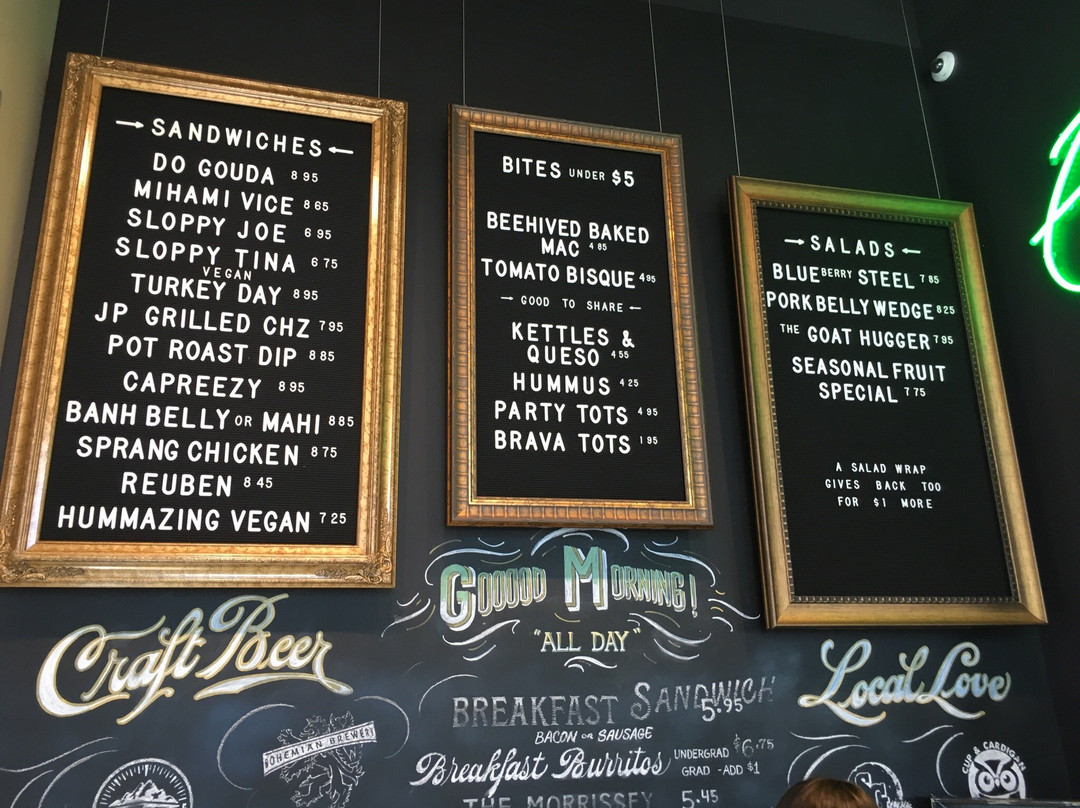 → SANDWICHES ←
DO GOUDA 8 95
MIHAMI VICE 8 65
SLOPPY JOE 6 95
SLOPPY TINA 6 75
VEGAN
TURKEY DAY 8 95
JP GRILLED CHZ 7 95
POT ROAST DIP 8 85
CAPREEZY 8 95
BANH BELLY OR MAHI 8 85
SPRANG CHICKEN 8 75
REUBEN 8 45
HUMMAZING VEGAN 7 25
BITES UNDER $5
BEEHIVED BAKED
MAC 4 85
TOMATO BISQUE 4 95
→ GOOD TO SHARE ←
KETTLES &
QUESO 4 55
HUMMUS 4 25
PARTY TOTS 4 95
BRAVA TOTS 1 95
→ SALADS ←
BLUEBERRY STEEL 7 85
PORK BELLY WEDGE 8 25
THE GOAT HUGGER 7 95
SEASONAL FRUIT
SPECIAL 7 75
A SALAD WRAP
GIVES BACK TOO
FOR $1 MORE
Craft Beer
BOHEMIAN BREWERY
GOOOOD MORNING!
"ALL DAY"
BREAKFAST SANDWICH
5.95
BACON OR SAUSAGE
Breakfast Burritos UNDERGRAD $6.75
GRAD - ADD $1
THE MORRISSEY 5.45
Local Love
CUP & CARDIGAN